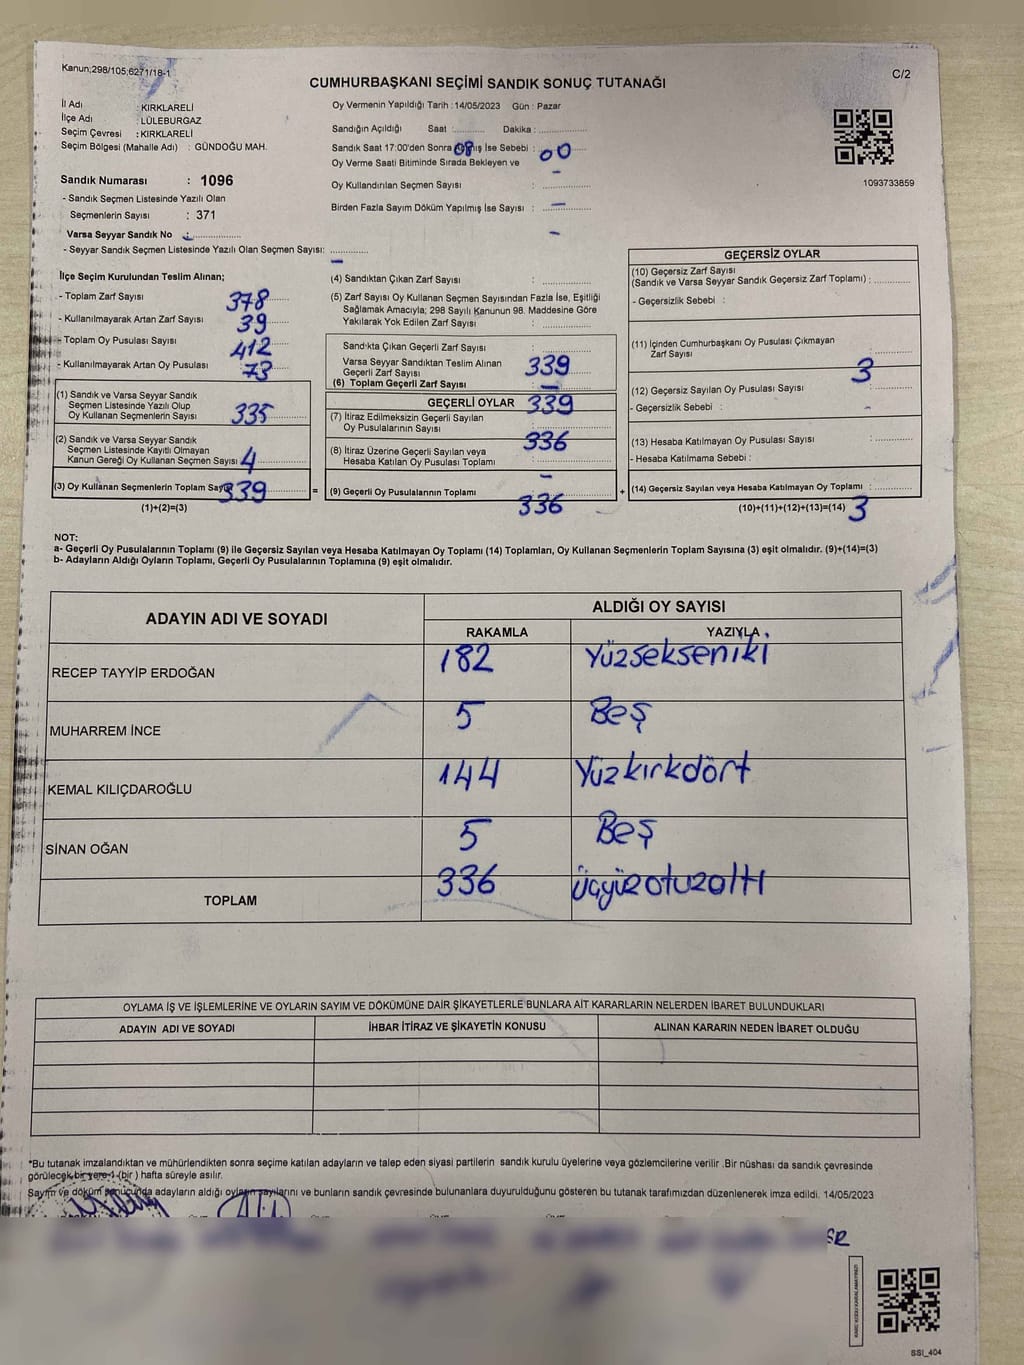 Kanun;298/105;6271/18-1
C/2
CUMHURBAŞKANI SEÇİMİ SANDIK SONUÇ TUTANAĞI
İl Adı : KIRKLARELİ
İlçe Adı : LÜLEBURGAZ
Seçim Çevresi : KIRKLARELİ
Seçim Bölgesi (Mahalle Adı) : GÜNDOĞU MAH.
Oy Vermenin Yapıldığı Tarih : 14/05/2023 Gün : Pazar
Sandığın Açıldığı Saat :.......... Dakika : ..........
08 00
Sandık Saat 17:00'den Sonra İse Sebebi : ..........
Oy Verme Saati Bitiminde Sırada Bekleyen ve
Oy Kullandırılan Seçmen Sayısı : .......... -
Birden Fazla Sayım Döküm Yapılmış İse Sayısı : .......... -
1093733859
Sandık Numarası : 1096
- Sandık Seçmen Listesinde Yazılı Olan
Seçmenlerin Sayısı : 371
Varsa Seyyar Sandık No : ..........
- Seyyar Sandık Seçmen Listesinde Yazılı Olan Seçmen Sayısı: .......... -
İlçe Seçim Kurulundan Teslim Alınan;
- Toplam Zarf Sayısı 378
- Kullanılmayarak Artan Zarf Sayısı 39
- Toplam Oy Pusulası Sayısı 412
- Kullanılmayarak Artan Oy Pusulası 73
(1) Sandık ve Varsa Seyyar Sandık
Seçmen Listesinde Yazılı Olup
Oy Kullanan Seçmenlerin Sayısı 335
(2) Sandık ve Varsa Seyyar Sandık
Seçmen Listesinde Kayıtlı Olmayan
Kanun Gereği Oy Kullanan Seçmen Sayısı 4
(3) Oy Kullanan Seçmenlerin Toplam Sayısı 339 =
(1)+(2)=(3)
(4) Sandıktan Çıkan Zarf Sayısı : ..........
(5) Zarf Sayısı Oy Kullanan Seçmen Sayısından Fazla İse, Eşitliği
Sağlamak Amacıyla; 298 Sayılı Kanunun 98. Maddesine Göre
Yakılarak Yok Edilen Zarf Sayısı : ..........
Sandıkta Çıkan Geçerli Zarf Sayısı
339
Varsa Seyyar Sandıktan Teslim Alınan
Geçerli Zarf Sayısı -
(6) Toplam Geçerli Zarf Sayısı
GEÇERLİ OYLAR 339
(7) İtiraz Edilmeksizin Geçerli Sayılan
Oy Pusulalarının Sayısı 336
(8) İtiraz Üzerine Geçerli Sayılan veya
Hesaba Katılan Oy Pusulası Toplamı -
(9) Geçerli Oy Pusulalarının Toplamı 336 +
GEÇERSİZ OYLAR
(10) Geçersiz Zarf Sayısı
(Sandık ve Varsa Seyyar Sandık Geçersiz Zarf Toplamı) : ..........
- Geçersizlik Sebebi :
(11) İçinden Cumhurbaşkanı Oy Pusulası Çıkmayan
Zarf Sayısı : ..........
3
(12) Geçersiz Sayılan Oy Pusulası Sayısı : ..........
- Geçersizlik Sebebi : -
(13) Hesaba Katılmayan Oy Pusulası Sayısı : ..........
- Hesaba Katılmama Sebebi :
(14) Geçersiz Sayılan veya Hesaba Katılmayan Oy Toplamı : ..........
(10)+(11)+(12)+(13)=(14) 3
NOT:
a- Geçerli Oy Pusulalarının Toplamı (9) ile Geçersiz Sayılan veya Hesaba Katılmayan Oy Toplamı (14) Toplamları, Oy Kullanan Seçmenlerin Toplam Sayısına (3) eşit olmalıdır. (9)+(14)=(3)
b- Adayların Aldığı Oyların Toplamı, Geçerli Oy Pusulalarının Toplamına (9) eşit olmalıdır.
ADAYIN ADI VE SOYADI ALDIĞI OY SAYISI
RAKAMLA YAZIYLA
RECEP TAYYİP ERDOĞAN 182 Yüzsekseniki
MUHARREM İNCE 5 Beş
KEMAL KILIÇDAROĞLU 144 Yüzkırkdört
SİNAN OĞAN 5 Beş
TOPLAM 336 üçyüzotuzaltı
OYLAMA İŞ VE İŞLEMLERİNE VE OYLARIN SAYIM VE DÖKÜMÜNE DAİR ŞİKAYETLERLE BUNLARA AİT KARARLARIN NELERDEN İBARET BULUNDUKLARI
ADAYIN ADI VE SOYADI İHBAR İTİRAZ VE ŞİKAYETİN KONUSU ALINAN KARARIN NEDEN İBARET OLDUĞU
*Bu tutanak imzalandıktan ve mühürlendikten sonra seçime katılan adayların ve talep eden siyasi partilerin sandık kurulu üyelerine veya gözlemcilerine verilir .Bir nüshası da sandık çevresinde
görülecek bir yere 1 (bir ) hafta süreyle asılır.
Sayım ve döküm sonucunda adayların aldığı oyların sayılarını ve bunların sandık çevresinde bulunanlara duyurulduğunu gösteren bu tutanak tarafımızdan düzenlenerek imza edildi. 14/05/2023
SSI_404